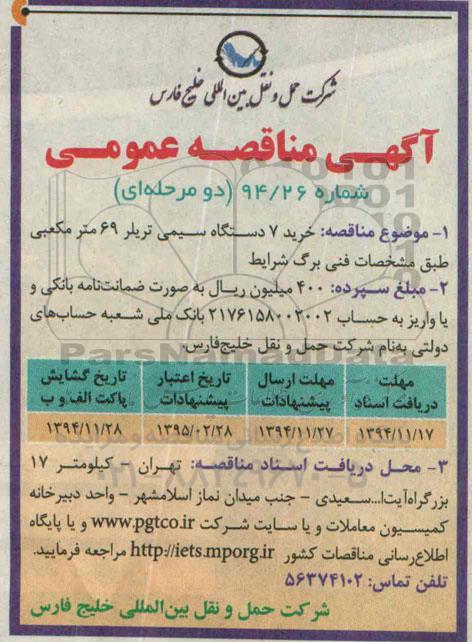 شرکت حمل و نقل بین المللی خلیج فارس
آگهی مناقصه عمومی
شماره ۹۴/۲۶ (دو مرحله‌ای)
۱- موضوع مناقصه: خرید ۷ دستگاه سیمی تریلر ۶۹ متر مکعبی
طبق مشخصات فنی برگ شرایط
۲- مبلغ سپرده: ۴۰۰ میلیون ریال به صورت ضمانت‌نامه بانکی و
یا واریز به حساب ۲۱۷۶۱۵۸۰۰۲۰۰۲ بانک ملی شعبه حساب‌های
دولتی به‌نام شرکت حمل و نقل خلیج‌فارس.
مهلت دریافت اسناد | مهلت ارسال پیشنهادات | تاریخ اعتبار پیشنهادات | تاریخ گشایش پاکت الف و ب
۱۳۹۴/۱۱/۱۷ | ۱۳۹۴/۱۱/۲۷ | ۱۳۹۵/۰۲/۲۸ | ۱۳۹۴/۱۱/۲۸
۳- محل دریافت اسناد مناقصه: تهران - کیلومتر ۱۷
بزرگراه آیت‌ا... سعیدی - جنب میدان نماز اسلامشهر - واحد دبیرخانه
کمیسیون معاملات و یا سایت شرکت www.pgtco.ir و یا پایگاه
اطلاع‌رسانی مناقصات کشور http://iets.mporg.ir مراجعه فرمایید.
تلفن تماس: ۵۶۳۷۴۱۰۲
شرکت حمل و نقل بین‌المللی خلیج فارس
ParsNamadData
۰۲۱-۸۸۳۴۹۶۷۰-۵